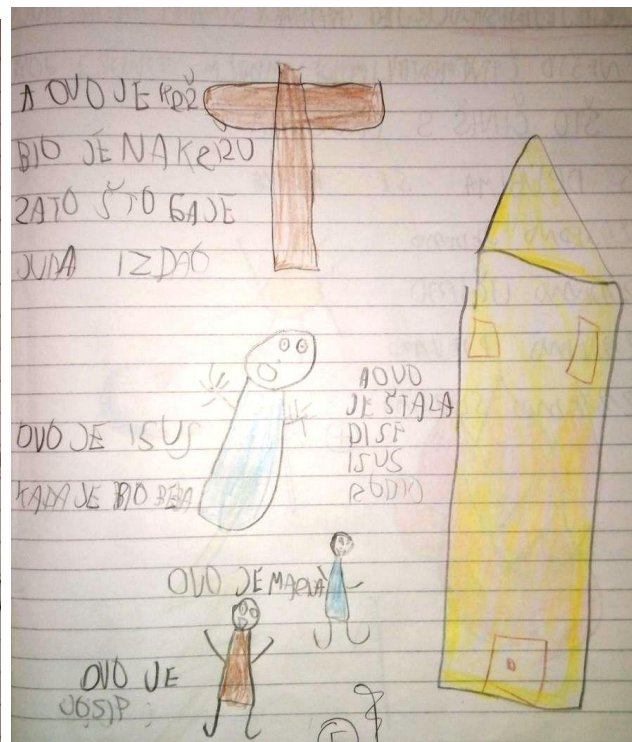 A OVO JE KRIŽ
BIO JE NA KRIZU
ZATO ŠTO GA JE
JUDA IZDAO
OVO JE ISUS
KADA JE BIO BEBA
A OVO
JE ŠTALA
DI SE
ISUS
RODIO
OVO JE MARIJA
OVO JE
JOSIP